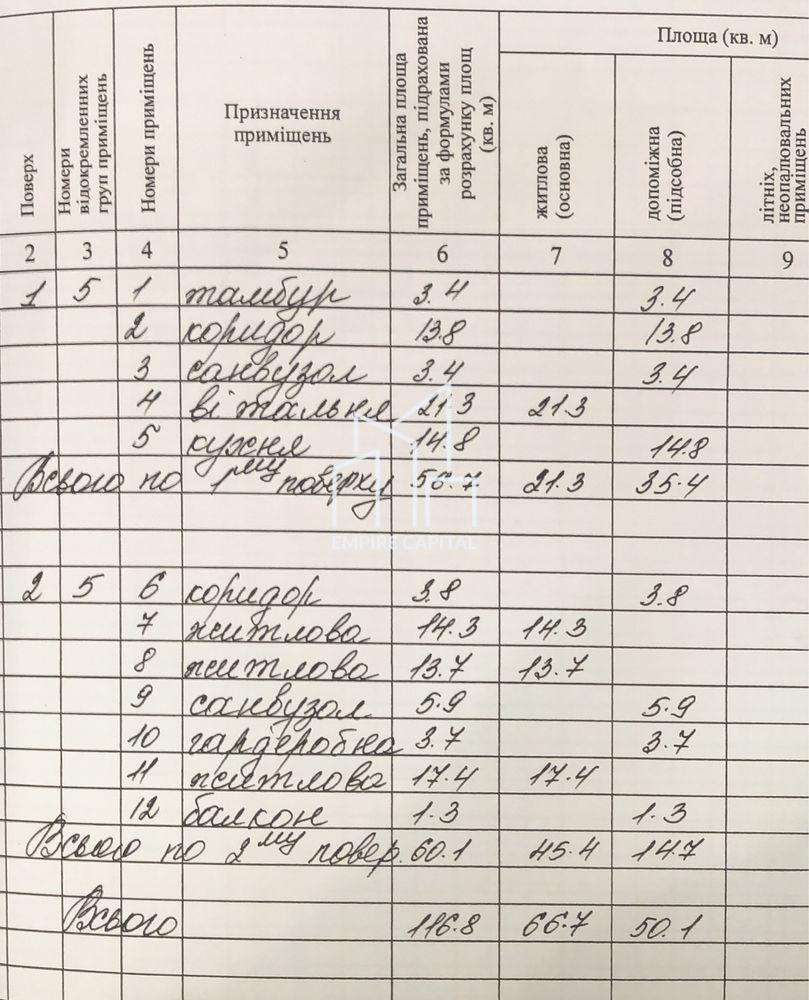 Поверх
Номери відокремленних груп приміщень
Номери приміщень
Призначення приміщень
Загальна площа приміщень, підрахована за формулами розрахунку площ (кв. м)
Площа (кв. м)
житлова (основна)
допоміжна (підсобна)
літніх, неопалювальних приміщень
2 3 4 5 6 7 8 9
1 5 1 тамбур 3.4 3.4
2 коридор 13.8 13.8
3 санвузол 3.4 3.4
4 вітальня 21.3 21.3
5 кухня 14.8 14.8
Всього по 1му поверху 56.7 21.3 35.4
EMPIRE CAPITAL
2 5 6 коридор 3.8 3.8
7 житлова 14.3 14.3
8 житлова 13.7 13.7
9 санвузол 5.9 5.9
10 гардеробна 3.7 3.7
11 житлова 17.4 17.4
12 балкон 1.3 1.3
Всього по 2му повер. 60.1 45.4 14.7
Всього 116.8 66.7 50.1